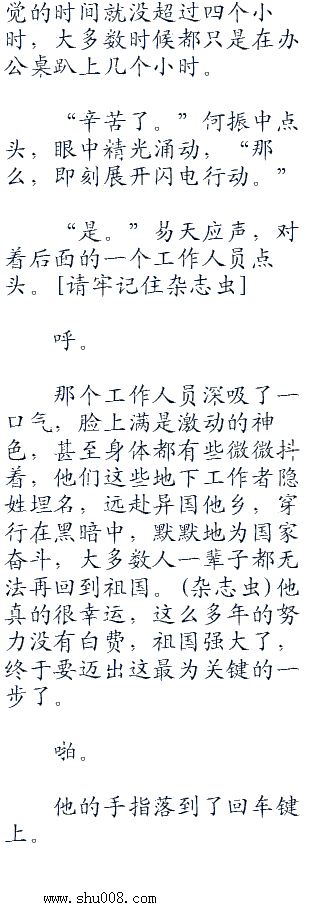 觉的时间就没超过四个小
时，大多数时候都只是在办
公桌趴上几个小时。
“辛苦了。”何振中点
头，眼中精光涌动，“那
么，即刻展开闪电行动。”
“是。”易天应声，对
着后面的一个工作人员点
头。[请牢记住杂志虫]
呼。
那个工作人员深吸了一
口气，脸上满是激动的神
色，甚至身体都有些微微抖
着，他们这些地下工作者隐
姓埋名，远赴异国他乡，穿
行在黑暗中，默默地为国家
奋斗，大多数人一辈子都无
法再回到祖国。(杂志虫)他
真的很幸运，这么多年的努
力没有白费，祖国强大了，
终于要迈出这最为关键的一
步了。
啪。
他的手指落到了回车键
上。
www.shu008.com